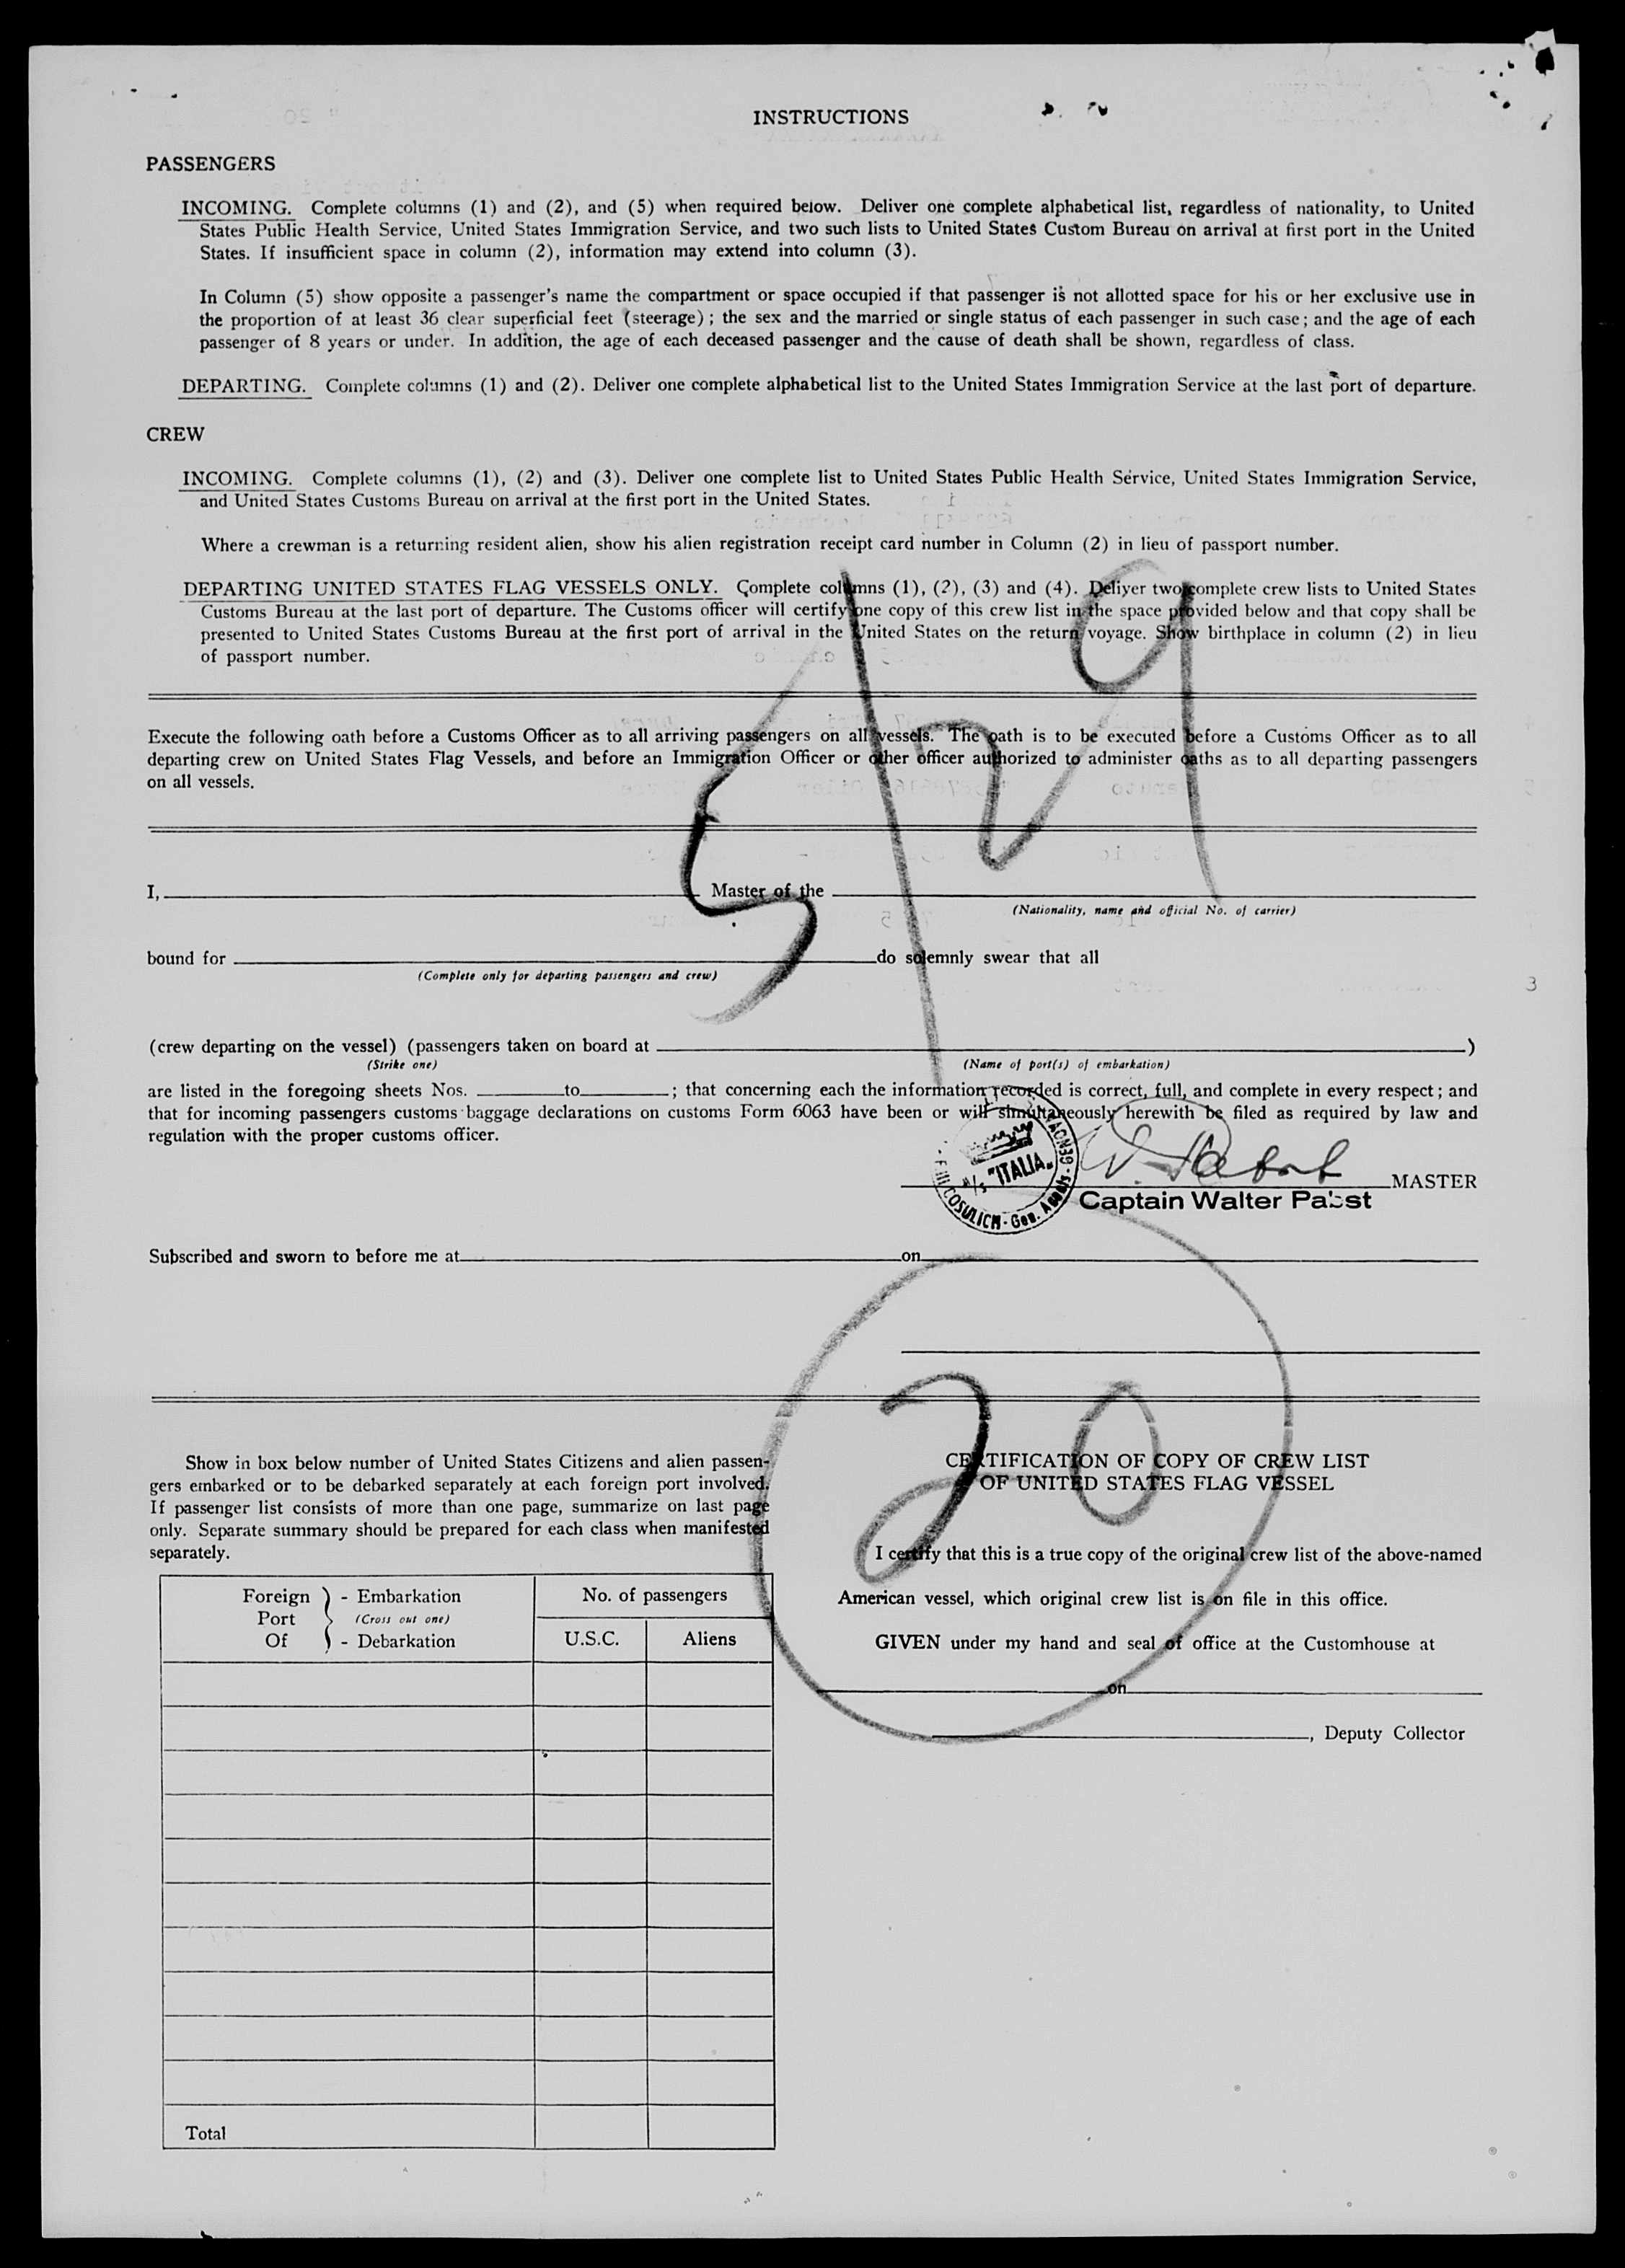 INSTRUCTIONS
PASSENGERS
INCOMING. Complete columns (1) and (2), and (5) when required below. Deliver one complete alphabetical list, regardless of nationality, to United
States Public Health Service, United States Immigration Service, and two such lists to United States Custom Bureau on arrival at first port in the United
States. If insufficient space in column (2), information may extend into column (3).
In Column (5) show opposite a passenger's name the compartment or space occupied if that passenger is not allotted space for his or her exclusive use in
the proportion of at least 36 clear superficial feet (steerage); the sex and the married or single status of each passenger in such case; and the age of each
passenger of 8 years or under. In addition, the age of each deceased passenger and the cause of death shall be shown, regardless of class.
DEPARTING. Complete columns (1) and (2). Deliver one complete alphabetical list to the United States Immigration Service at the last port of departure.
CREW
INCOMING. Complete columns (1), (2) and (3). Deliver one complete list to United States Public Health Service, United States Immigration Service,
and United States Customs Bureau on arrival at the first port in the United States.
Where a crewman is a returning resident alien, show his alien registration receipt card number in Column (2) in lieu of passport number.
DEPARTING UNITED STATES FLAG VESSELS ONLY. Complete columns (1), (2), (3) and (4). Deliver two complete crew lists to United States
Customs Bureau at the last port of departure. The Customs officer will certify one copy of this crew list in the space provided below and that copy shall be
presented to United States Customs Bureau at the first port of arrival in the United States on the return voyage. Show birthplace in column (2) in lieu
of passport number.
5/29
Execute the following oath before a Customs Officer as to all arriving passengers on all vessels. The oath is to be executed before a Customs Officer as to all
departing crew on United States Flag Vessels, and before an Immigration Officer or other officer authorized to administer oaths as to all departing passengers
on all vessels.
I, Master of the
(Nationality, name and official No. of carrier)
bound for do solemnly swear that all
(Complete only for departing passengers and crew)
3
(crew departing on the vessel) (passengers taken on board at )
(Strike one) (Name of port(s) of embarkation)
are listed in the foregoing sheets Nos. to ; that concerning each the information recorded is correct, full, and complete in every respect; and
that for incoming passengers customs baggage declarations on customs Form 6063 have been or will simultaneously herewith be filed as required by law and
regulation with the proper customs officer.
"ITALIA"
COSULICH - Gen. Agents - GENOVA
W. Pabst MASTER
Captain Walter Pabst
Subscribed and sworn to before me at on
20
Show in box below number of United States Citizens and alien passen-
gers embarked or to be debarked separately at each foreign port involved.
If passenger list consists of more than one page, summarize on last page
only. Separate summary should be prepared for each class when manifested
separately.
Foreign Port Of
- Embarkation
(Cross out one)
- Debarkation
No. of passengers
U.S.C. Aliens
Total
CERTIFICATION OF COPY OF CREW LIST
OF UNITED STATES FLAG VESSEL
I certify that this is a true copy of the original crew list of the above-named
American vessel, which original crew list is on file in this office.
GIVEN under my hand and seal of office at the Customhouse at
on
, Deputy Collector